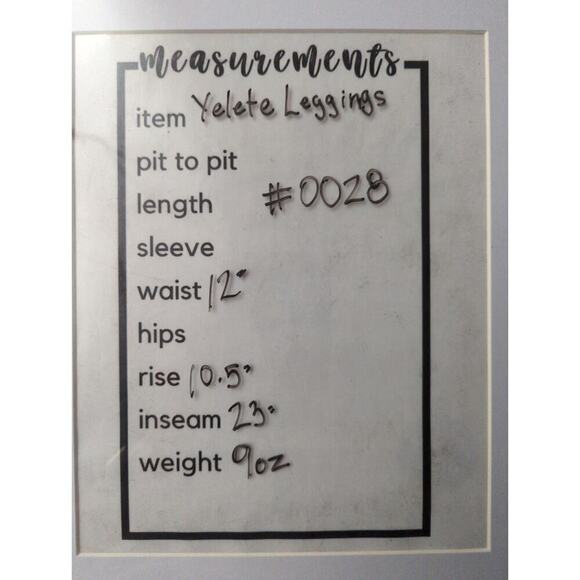 measurements
item Yelete Leggings
pit to pit
length #0028
sleeve
waist 12"
hips
rise 10.5"
inseam 23"
weight 9oz